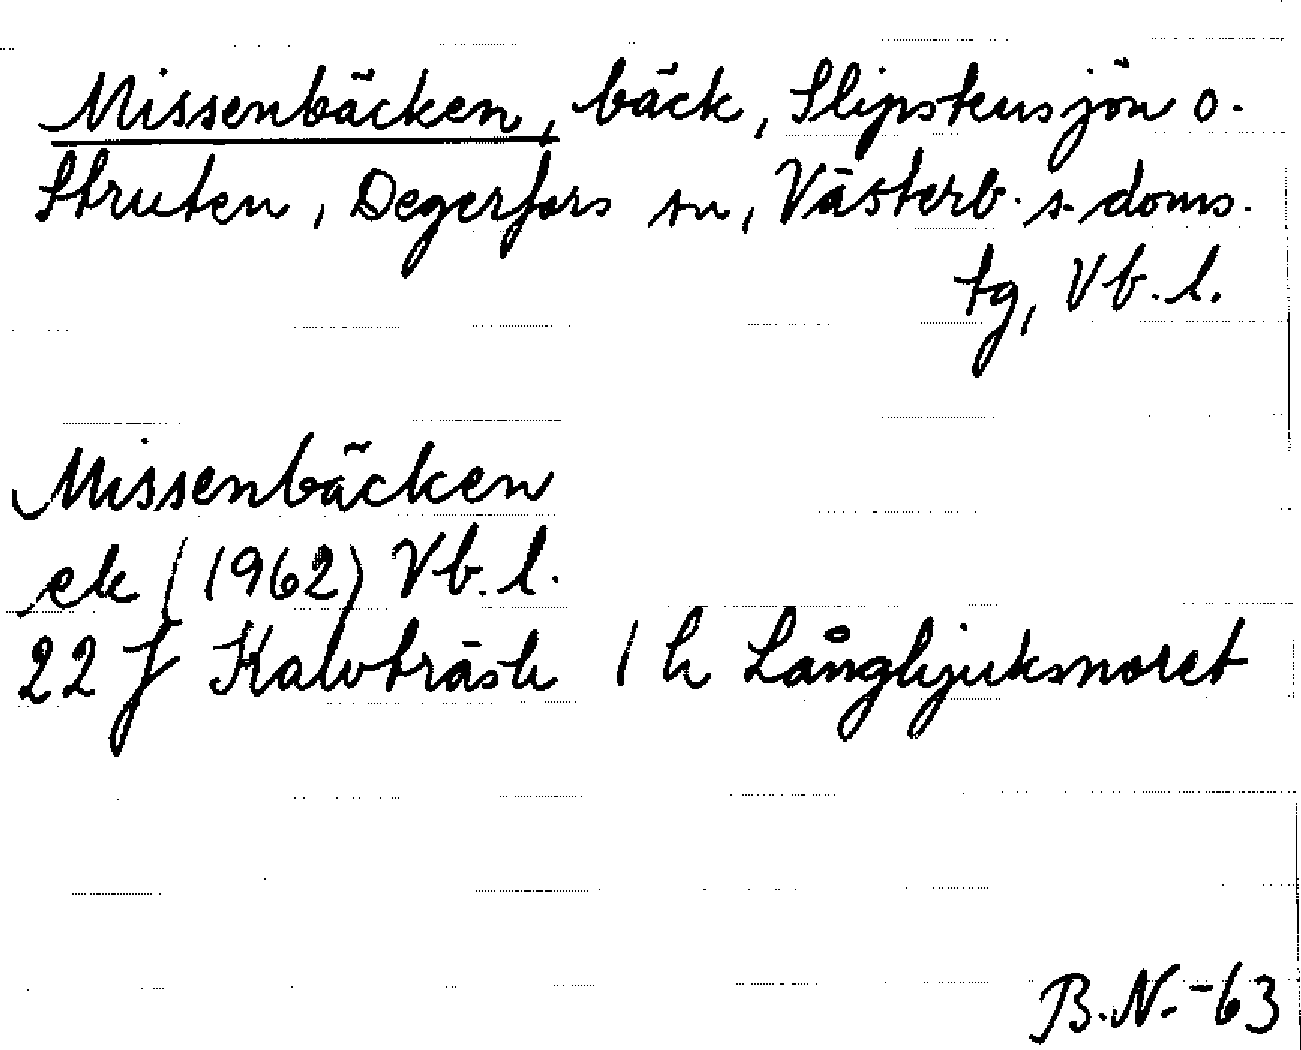 Missenbäcken, bäck, Slipstensjön o.
Struten, Degerfors sn, Västerb. s. doms.
tg, Vb. l.
Missenbäcken
ek (1962) Vb. l.
22 J Kalvträsk 1 h Långhjuksmoret
B.N. -63